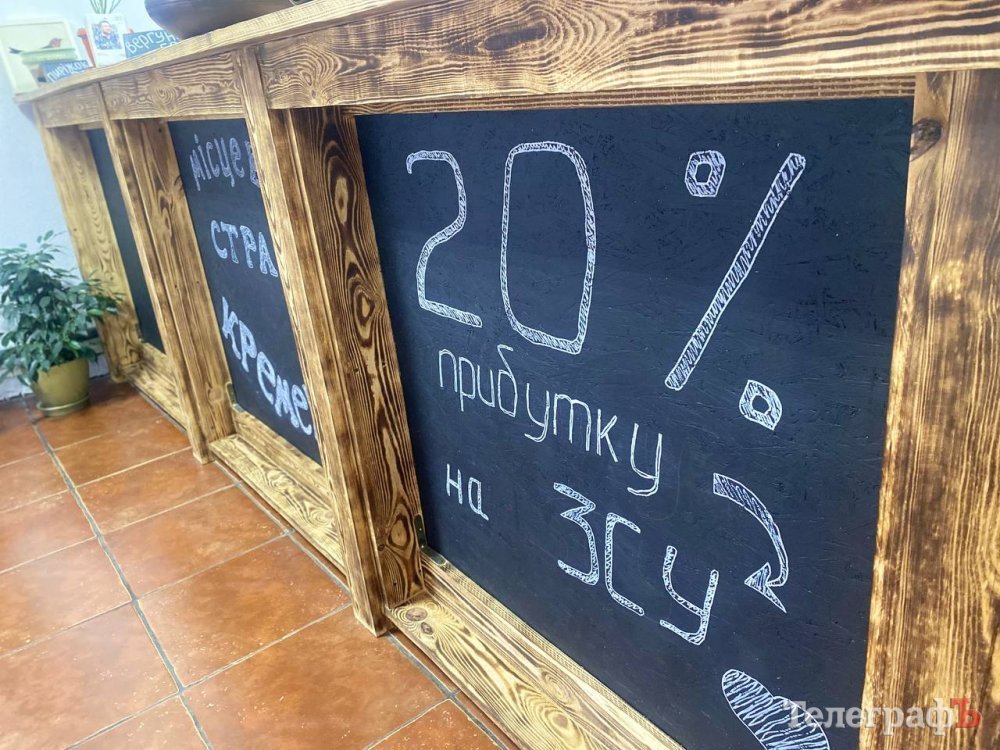 пиріжок
місце
СТРА
Креме
20%
прибутку
на ЗСУ
ТелеграфЪ